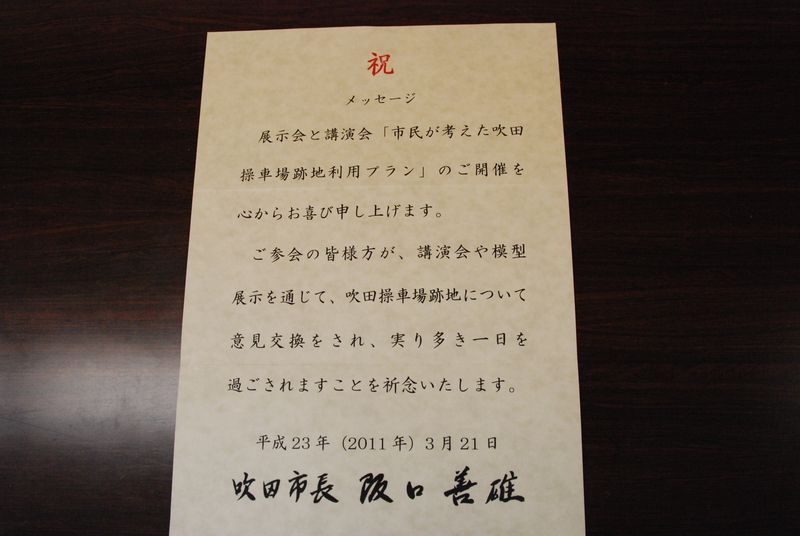 祝
メッセージ
展示会と講演会「市民が考えた吹田
操車場跡地利用プラン」のご開催を
心からお喜び申し上げます。
ご参会の皆様方が、講演会や模型
展示を通じて、吹田操車場跡地について
意見交換をされ、実り多き一日を
過ごされますことを祈念いたします。
平成23年（2011年）3月21日
吹田市長 阪口善雄